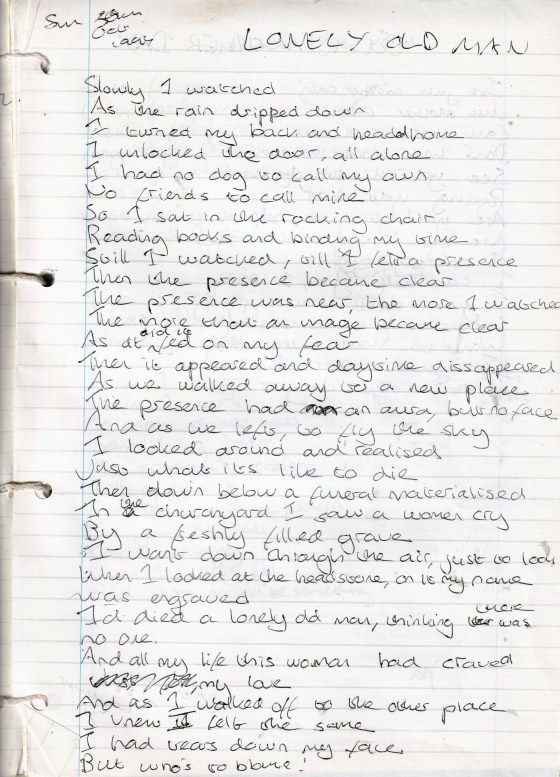 Sun
LONELY OLD MAN
Slowly I watched
As the rain dripped down
I turned my back and headdhome
I unlocked the door, all alone
I had no dog to call my own
No friends to call mine
So I sat in the rocking chair
Reading books and binding my time
Still I watched, till I felt a presence
Then the presence became clear
The presence was near, the more I watched
The more that an image became clear
As did it fed on my fear
Then it appeared and daytime dissappeared
As we walked away to a new place
The presence had an aura, but no face
And as we left, to fly the sky
I looked around and realised
Just what its like to die
Then down below a funeral materialised
In the churchyard I saw a women cry
By a feshly filled grave
I went down through the air, just to look
When I looked at the headstone, on it my name
was engraved
I'd died a lonely old man, thinking there was
no one.
And all my life this woman had craved
my love
And as I walked off to the other place
I knew I felt the same
I had tears down my face
But who's to blame!